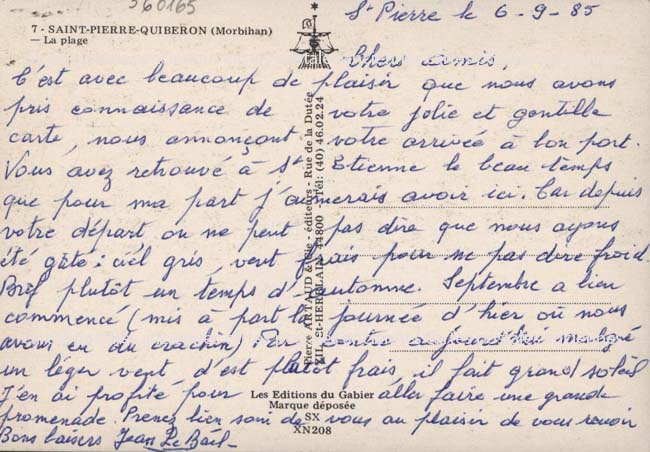 360165
St Pierre le 6-9-85
7 - SAINT-PIERRE-QUIBERON (Morbihan)
— La plage
Chers amis,
C'est avec beaucoup de plaisir que nous avons
pris connaissance de votre jolie et gentille
carte, nous annonçant votre arrivée à bon port.
Vous avez retrouvé à St Etienne le beau temps
que pour ma part j'aimerais avoir ici. Car depuis
votre départ on ne peut pas dire que nous ayons
été gâté: ciel gris, vent frais pour ne pas dire froid.
Bref plutôt un temps d'automne. Septembre a bien
commencé (mis à part la journée d'hier où nous
avons eu du crachin) Par contre aujourd'hui malgré
un léger vent d'est plutôt frais, il fait grand soleil
J'en ai profité pour aller faire une grande
promenade. Prenez bien soin de vous au plaisir de vous revoir
Bons baisers Jean Le Bail
Pierre ARTAUD & Cie - éditeurs - Rue de la Dutée
Z.I.L. St-HERBLAIN 44800 - Tél: (40) 46.02.24
Les Editions du Gabier
Marque déposée
SX
XN208